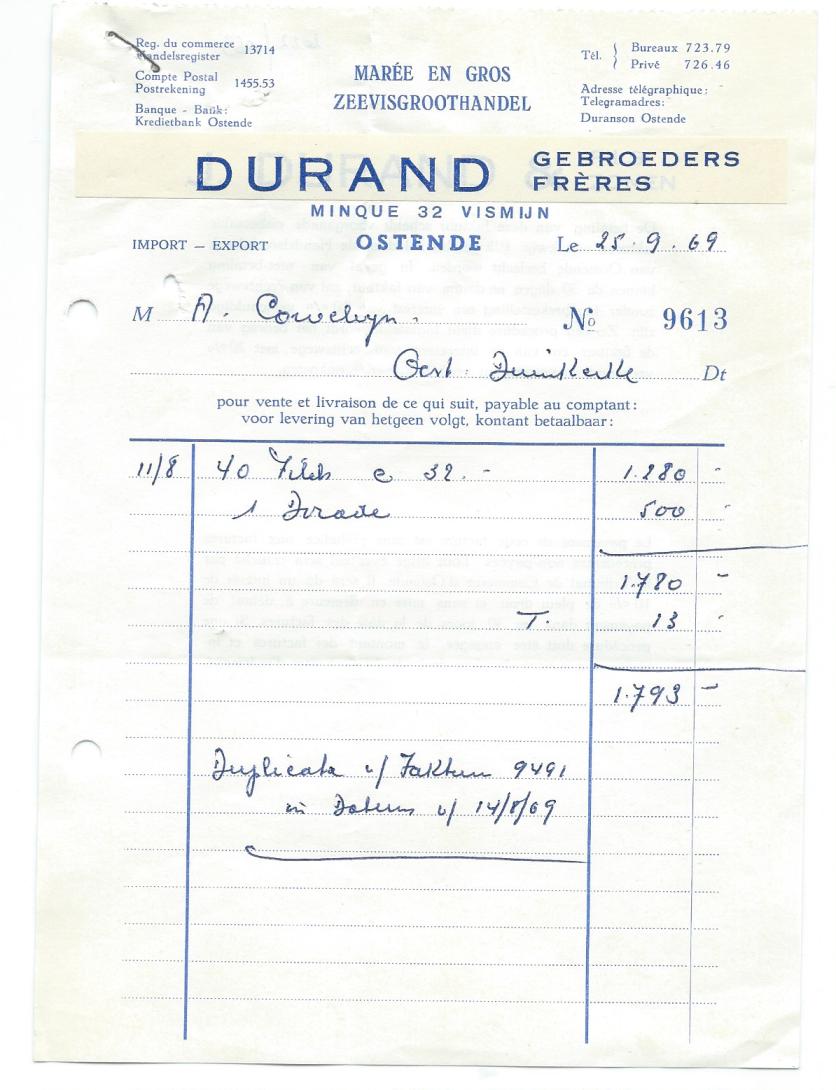 Reg. du commerce
Handelsregister 13714
Compte Postal
Postrekening 1455.53
Banque - Bank:
Kredietbank Ostende
MARÉE EN GROS
ZEEVISGROOTHANDEL
Tél. { Bureaux 723.79
Privé 726.46
Adresse télégraphique:
Telegramadres:
Duranson Ostende
DURAND GEBROEDERS
FRÈRES
MINQUE 32 VISMIJN
IMPORT – EXPORT OSTENDE Le 25.9.69
M A. No 9613
Oost. Duinkerke Dt
pour vente et livraison de ce qui suit, payable au comptant:
voor levering van hetgeen volgt, kontant betaalbaar:
11/8 40 Filets c 32.- 1.280 -
1 Dorade 500 -
1.780 -
T. 13 -
1.793 -
Duplicata v/ Faktuur 9491
in Datum v/ 14/8/69